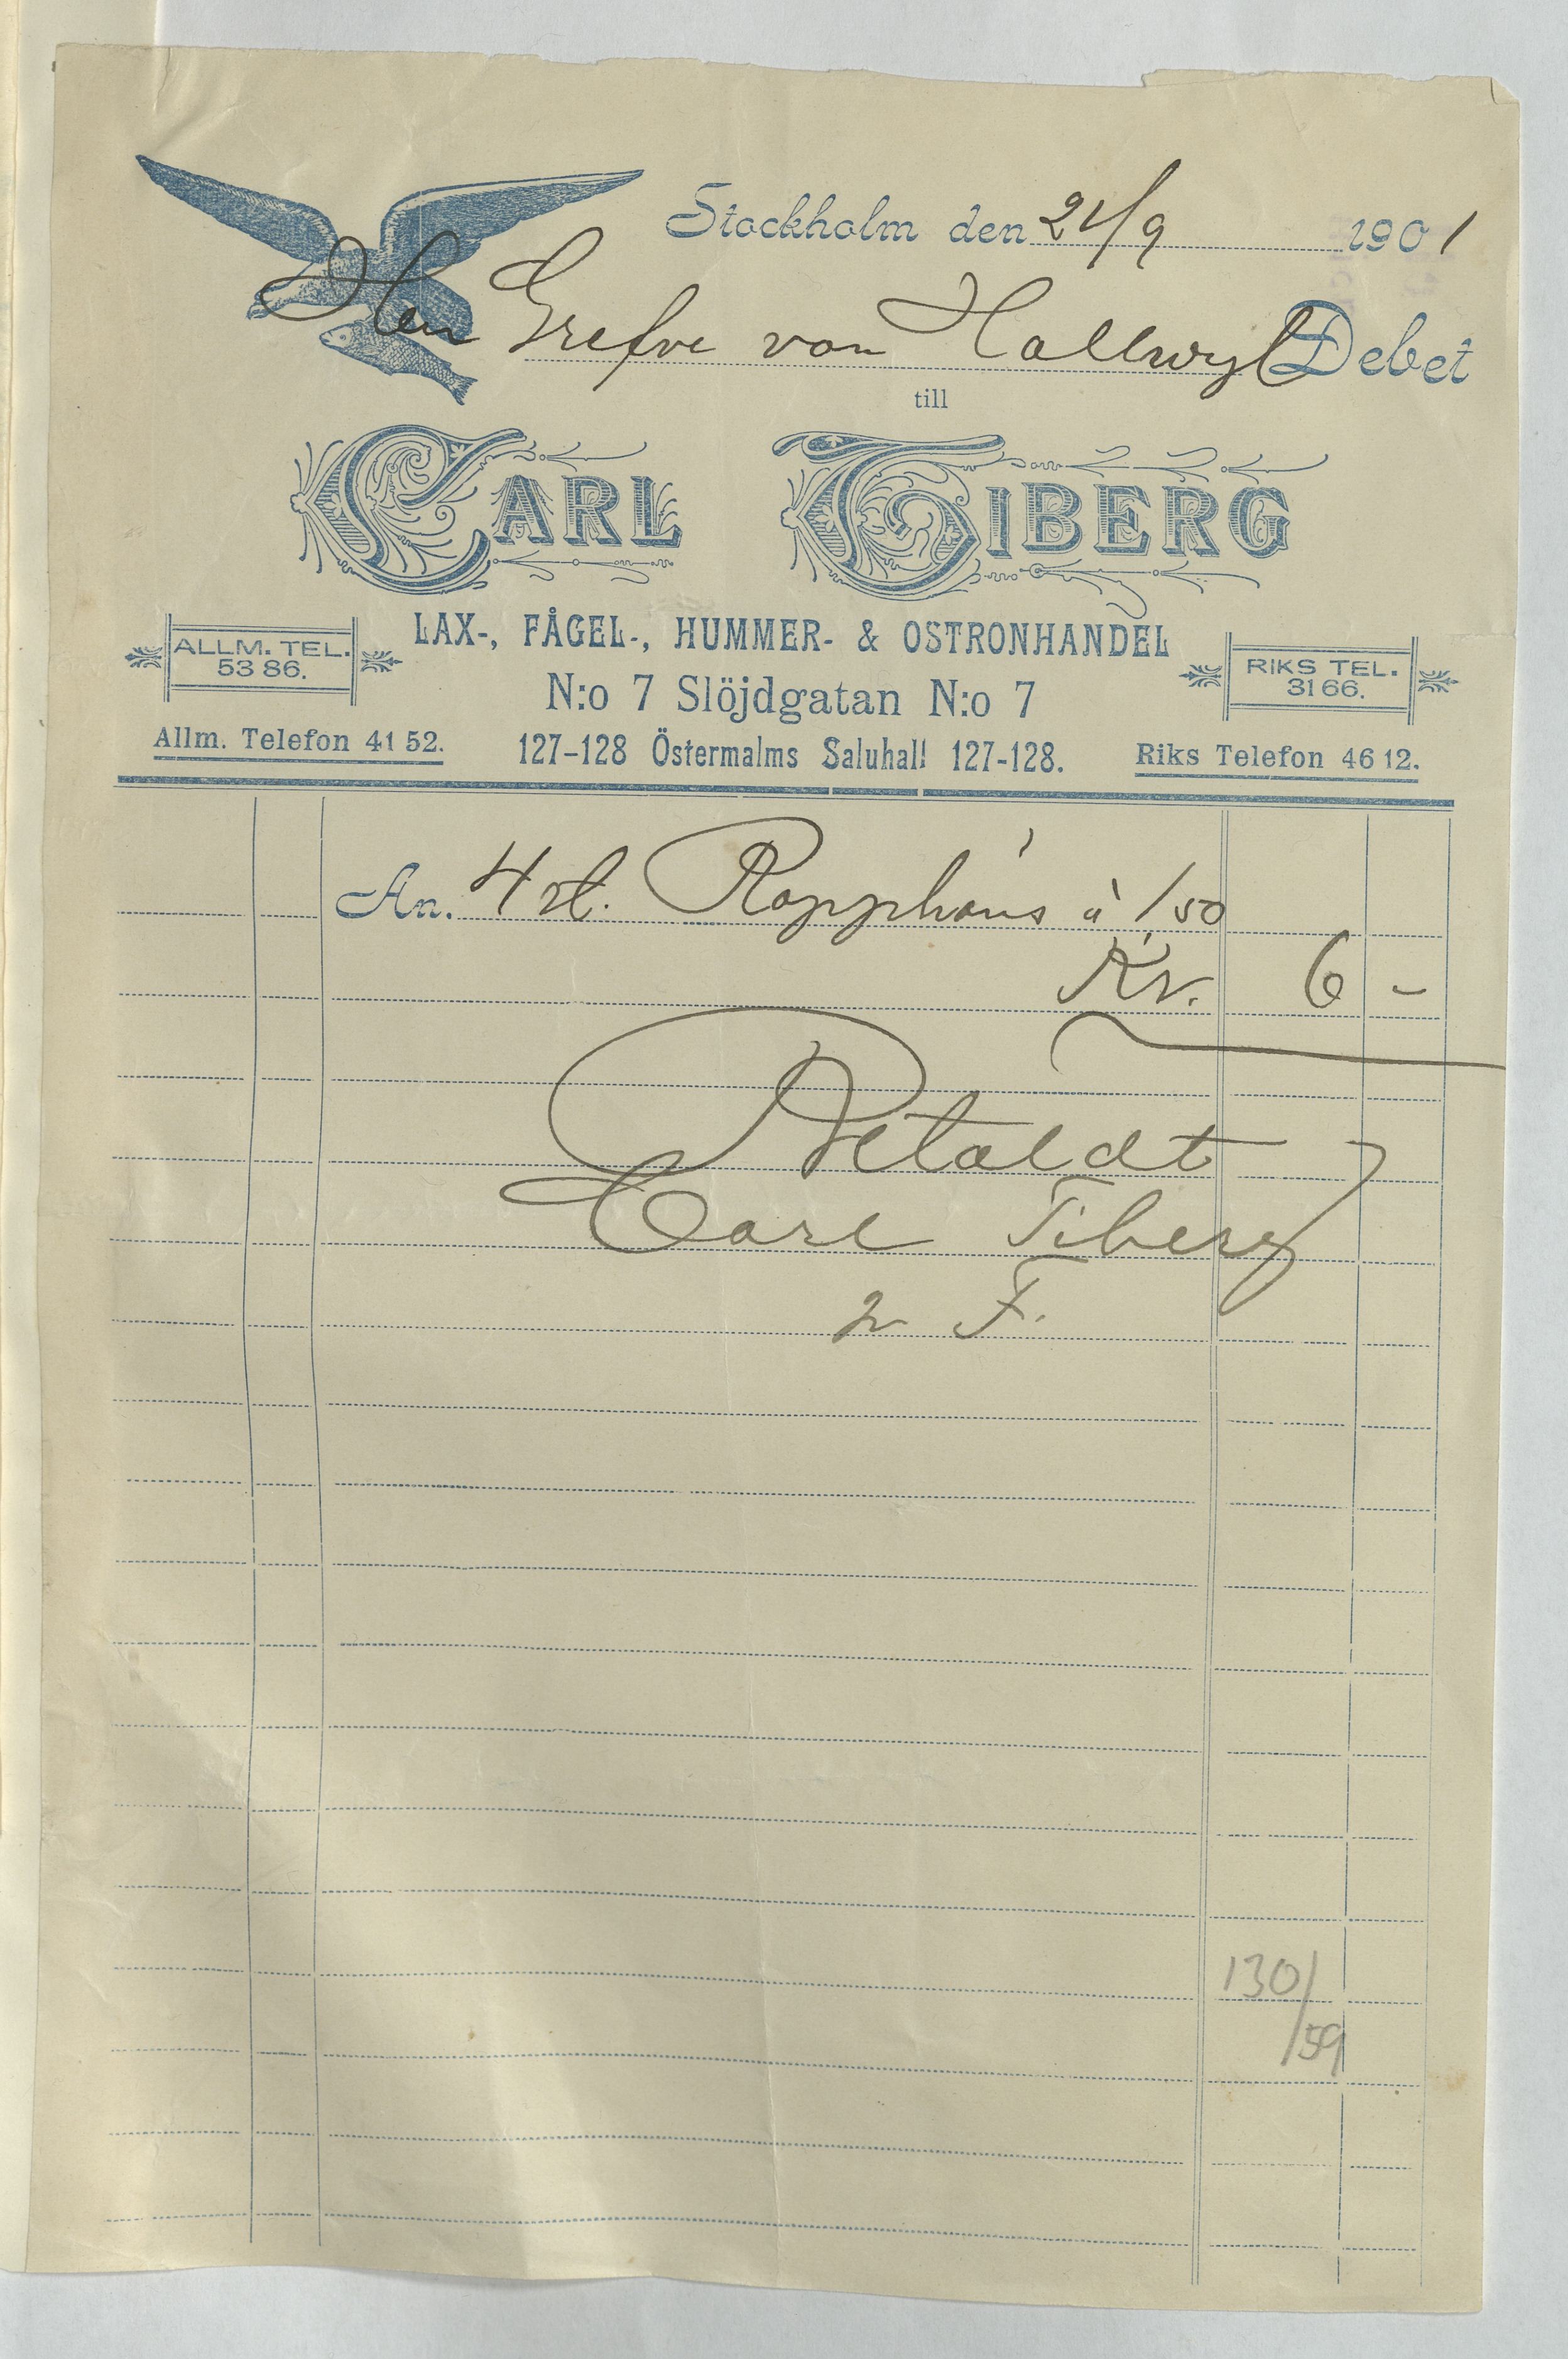 Stockholm den 21/9 1901
Herr Grefve von Hallwyl Debet
till
CARL TIBERG
LAX-, FÅGEL-, HUMMER- & OSTRONHANDEL
ALLM. TEL. 53 86.
RIKS TEL. 31 66.
N:o 7 Slöjdgatan N:o 7
Allm. Telefon 41 52.
127-128 Östermalms Saluhall 127-128.
Riks Telefon 46 12.
An. 4 st. Rapphöns à 1,50
Kr. 6 -
Betaldt
Carl Tiberg
F.
130/
/59